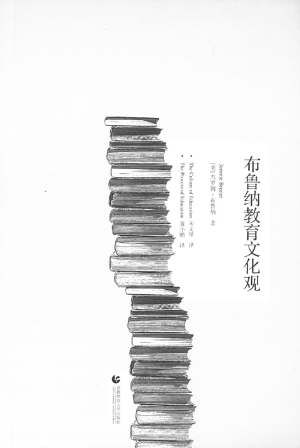 布鲁纳教育文化观
Jerome Bruner
[美]杰罗姆·布鲁纳 著
The Culture of Education 宋文里 译
The Process of Education 黄小鹏 译
首都师范大学出版社